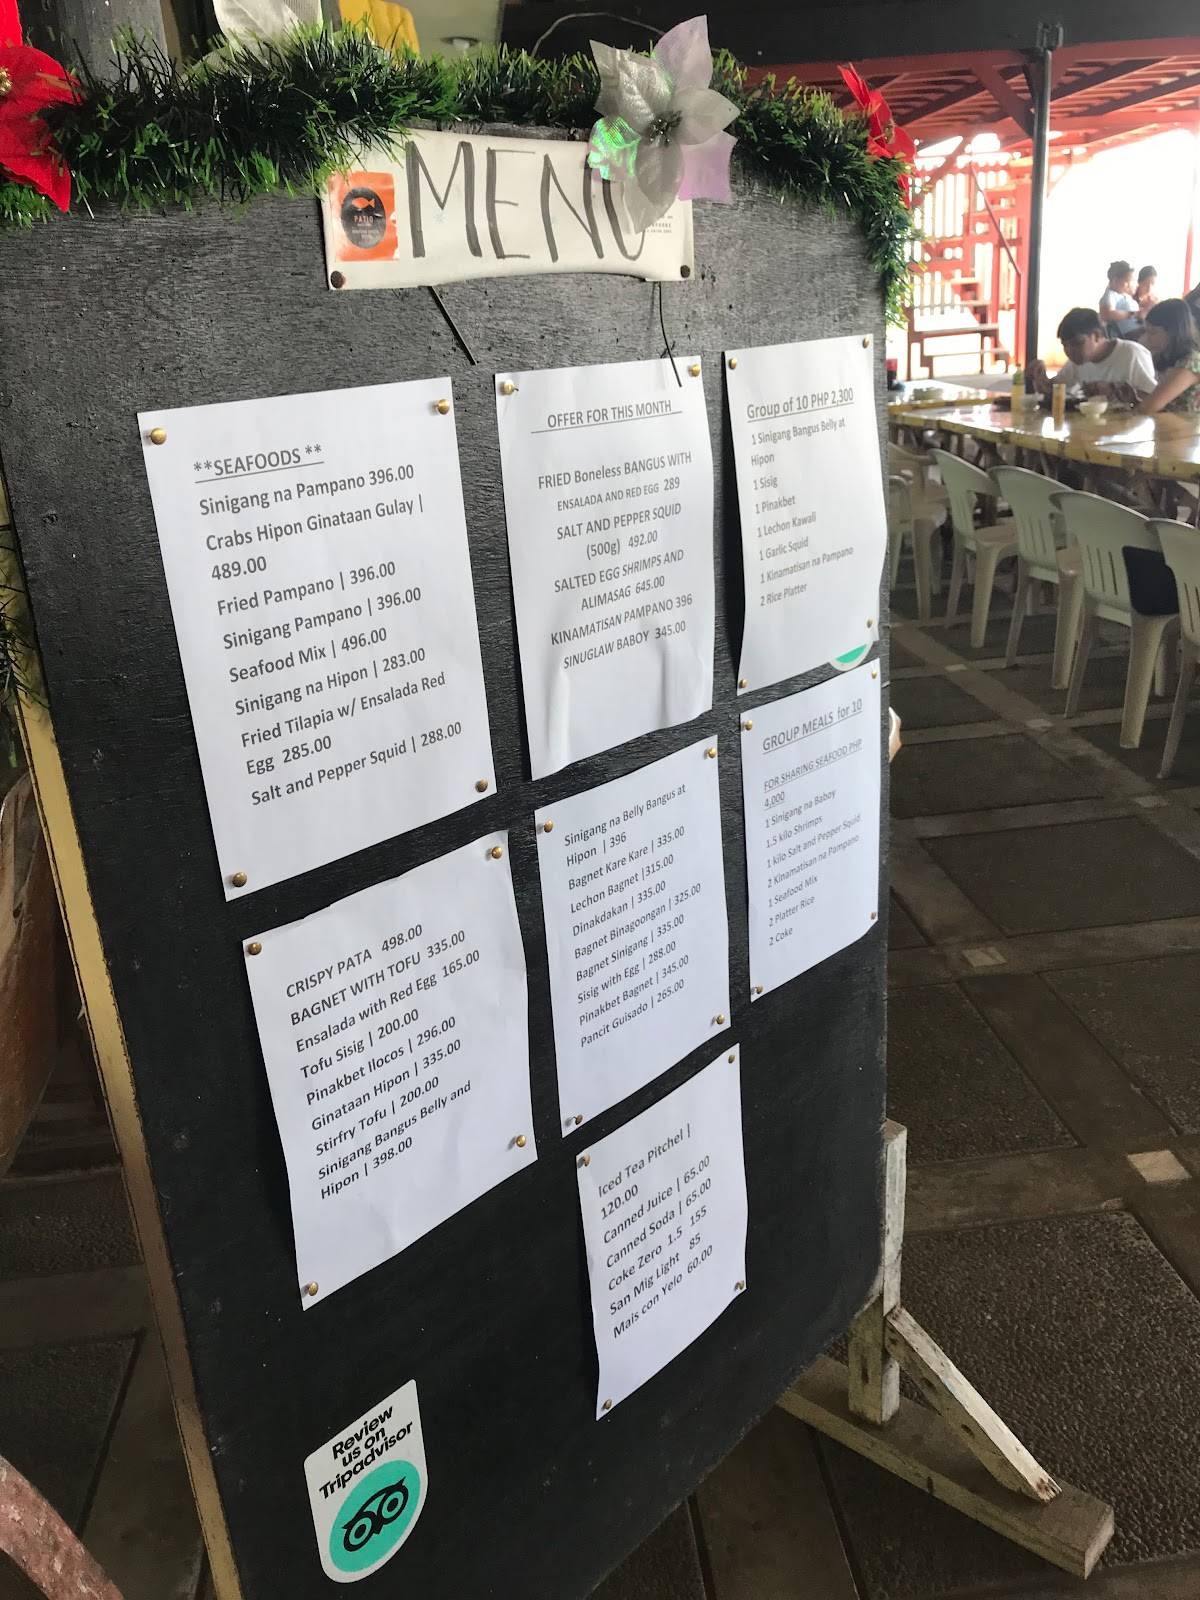 MENU
PATIO
**SEAFOODS **
Sinigang na Pampano 396.00
Crabs Hipon Ginataan Gulay |
489.00
Fried Pampano | 396.00
Sinigang Pampano | 396.00
Seafood Mix | 496.00
Sinigang na Hipon | 283.00
Fried Tilapia w/ Ensalada Red
Egg 285.00
Salt and Pepper Squid | 288.00
OFFER FOR THIS MONTH
FRIED Boneless BANGUS WITH
ENSALADA AND RED EGG 289
SALT AND PEPPER SQUID
(500g) 492.00
SALTED EGG SHRIMPS AND
ALIMASAG 645.00
KINAMATISAN PAMPANO 396
SINUGLAW BABOY 345.00
Group of 10 PHP 2,300
1 Sinigang Bangus Belly at
Hipon
1 Sisig
1 Pinakbet
1 Lechon Kawali
1 Garlic Squid
1 Kinamatisan na Pampano
2 Rice Platter
GROUP MEALS for 10
FOR SHARING SEAFOOD PHP
4,000
1 Sinigang na Baboy
1.5 kilo Shrimps
1 kilo Salt and Pepper Squid
2 Kinamatisan na Pampano
1 Seafood Mix
2 Platter Rice
2 Coke
CRISPY PATA 498.00
BAGNET WITH TOFU 335.00
Ensalada with Red Egg 165.00
Tofu Sisig | 200.00
Pinakbet Ilocos | 296.00
Ginataan Hipon | 335.00
Stirfry Tofu | 200.00
Sinigang Bangus Belly and
Hipon | 398.00
Sinigang na Belly Bangus at
Hipon | 396
Bagnet Kare Kare | 335.00
Lechon Bagnet |315.00
Dinakdakan | 335.00
Bagnet Binagoongan | 325.00
Bagnet Sinigang | 335.00
Sisig with Egg | 288.00
Pinakbet Bagnet | 345.00
Pancit Guisado | 265.00
Iced Tea Pitchel |
120.00
Canned Juice | 65.00
Canned Soda | 65.00
Coke Zero 1.5 155
San Mig Light 85
Mais con Yelo 60.00
Review
us on
Tripadvisor